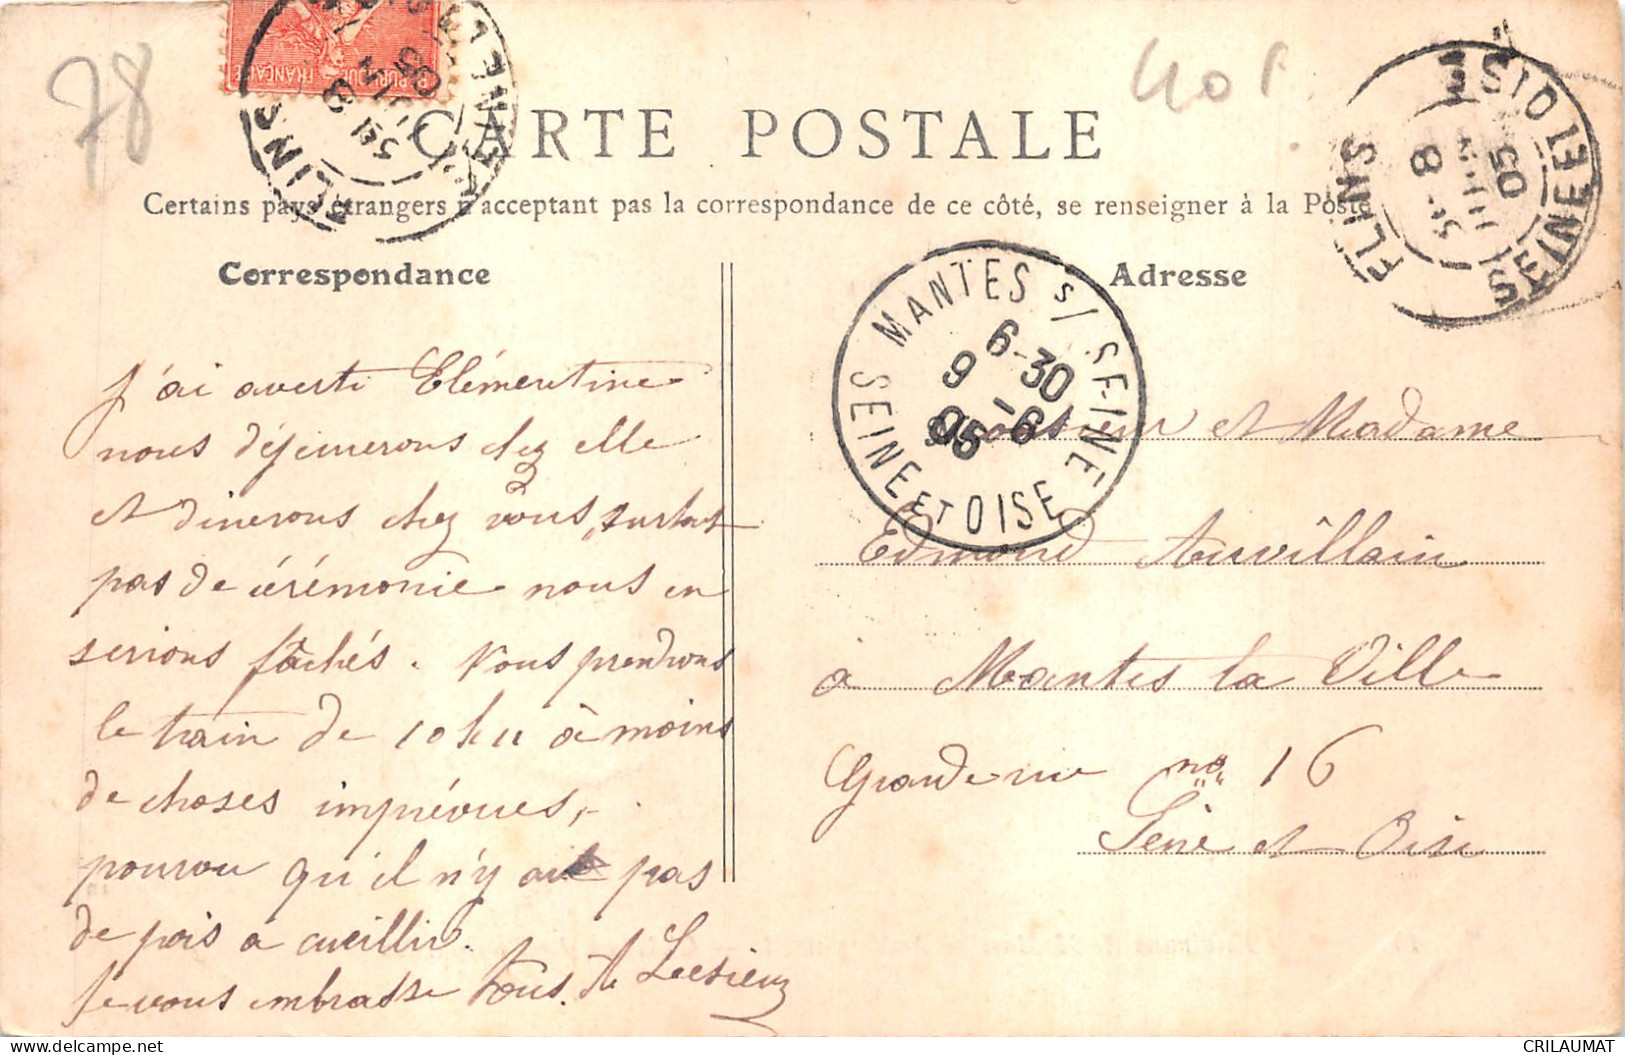 78
401
RÉPUBLIQUE FRANÇAISE
FLINS
FLINS
8
05
SEINE
CARTE POSTALE
Certains pays étrangers n'acceptant pas la correspondance de ce côté, se renseigner à la Poste
Correspondance
Adresse
MANTES S/ SEINE
6-30
9 - 6
05
SEINE ET OISE
J'ai averti Clémentine
nous déjeunerons chez elle
et dinerons chez vous, surtout
pas de cérémonie nous en
serions fâchés. Nous prendrons
le train de 10h11 à moins
de choses imprévues,
pourvu qu'il n'y ait pas
de pois a cueillir.
Je vous embrasse tous.
Monsieur et Madame
Edmond Auvillain
à Mantes la Ville
Grande rue no 16
Seine et Oise
CRILAUMAT